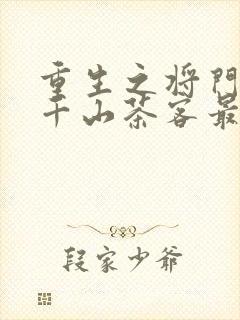 重生之将门
千山茶客最
段家少爷